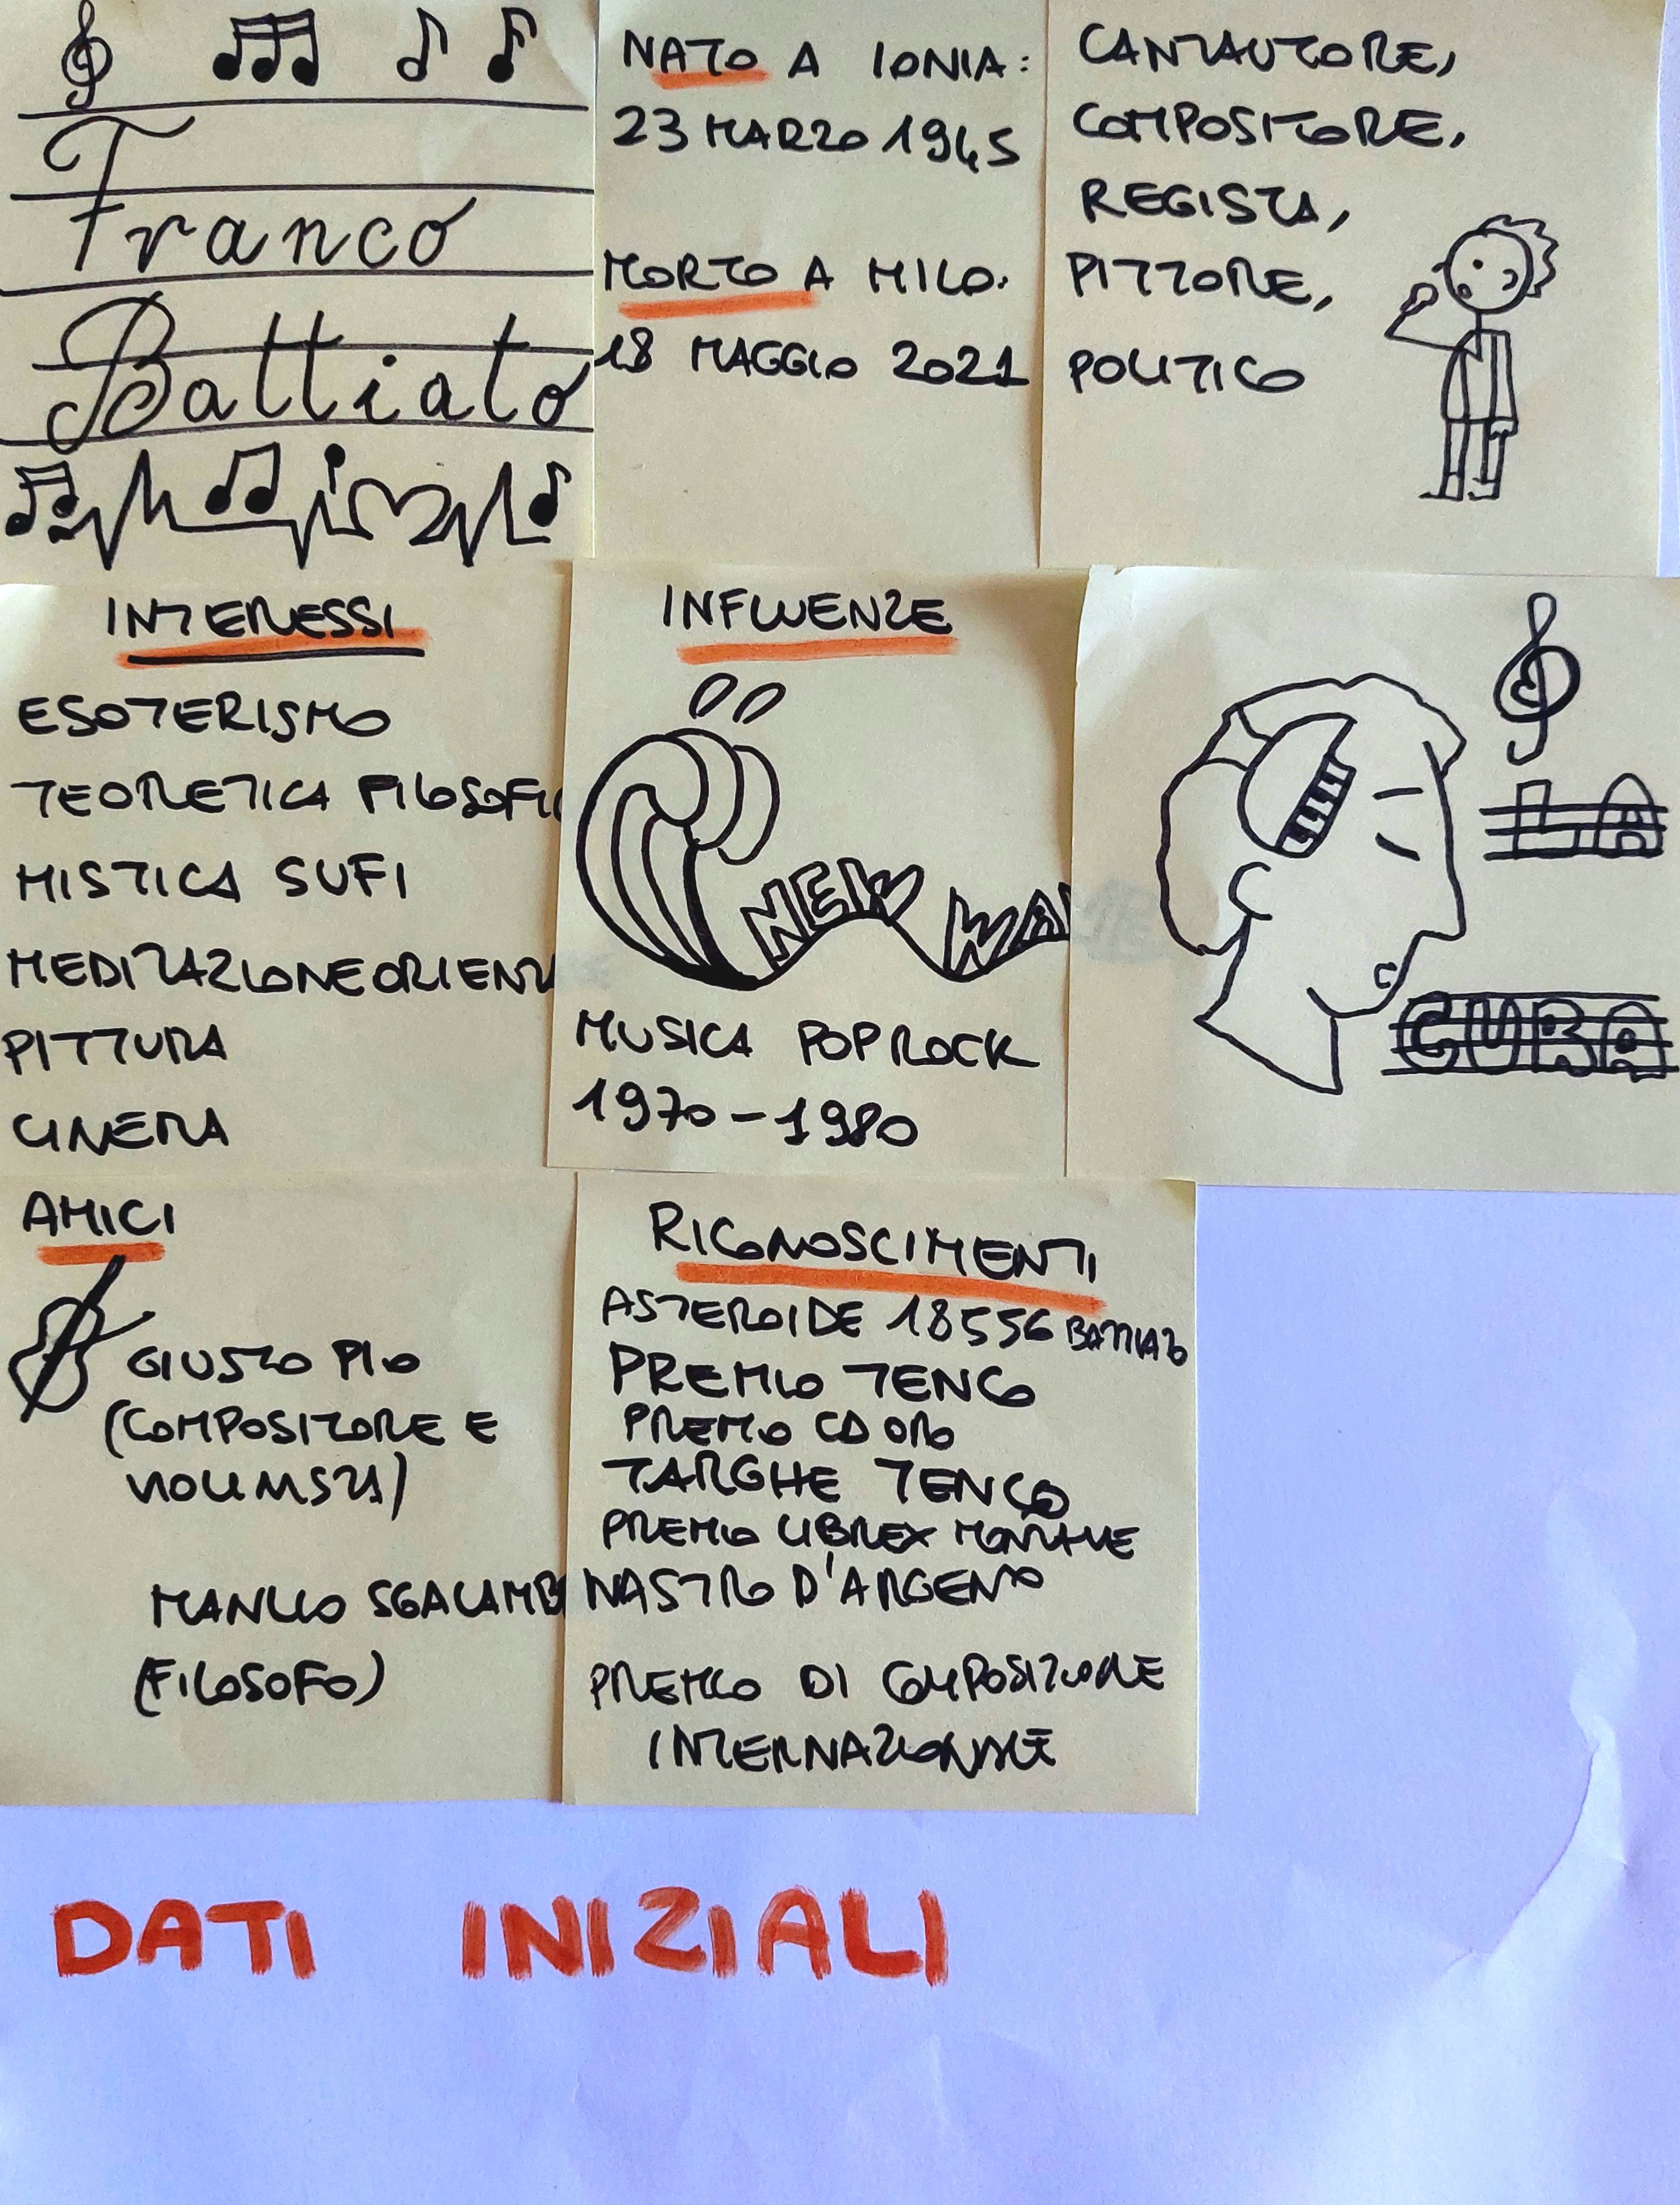 Franco
Battiato
NATO A IONIA:
23 MARZO 1945
MORTO A MILO.
18 MAGGIO 2021
CANTAUTORE,
COMPOSITORE,
REGISTA,
PITTORE,
POLITICO
INTERESSI
ESOTERISMO
TEORETICA FILOSOFIC
MISTICA SUFI
MEDITAZIONE ORIENTA
PITTURA
CINEMA
INFLUENZE
NEW WA
MUSICA POP ROCK
1970-1980
LA
CURA
AMICI
GIUSTO PIO
(COMPOSITORE E
VIOLINISTA)
MANLIO SGALAMB
(FILOSOFO)
RICONOSCIMENTI
ASTEROIDE 18556 BATTIATO
PREMIO TENCO
PREMIO CD ORO
TARGHE TENCO
PREMIO LIBREX MONTALE
NASTRO D'ARGENTO
PREMIO DI COMPOSIZIONE
INTERNAZIONALE
DATI INIZIALI